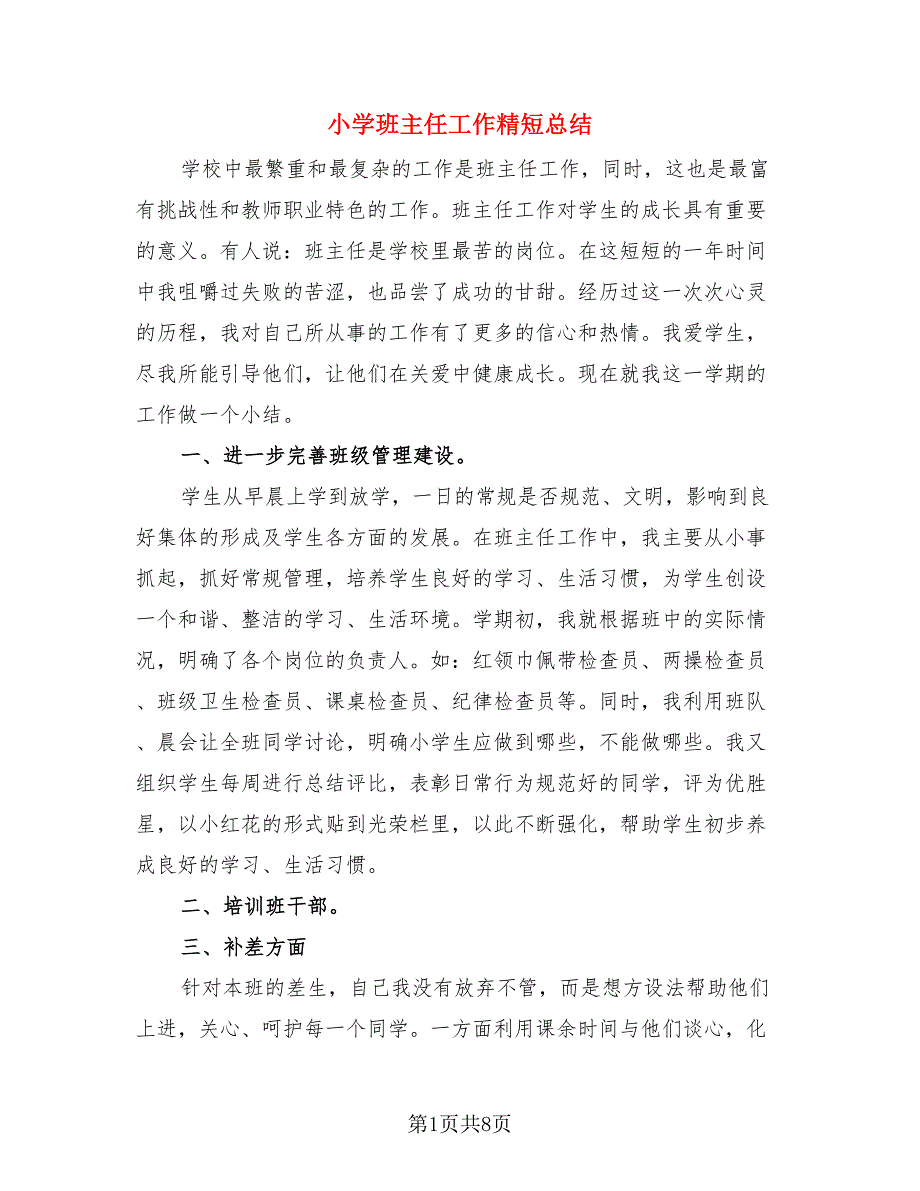 小学班主任工作精短总结
学校中最繁重和最复杂的工作是班主任工作，同时，这也是最富
有挑战性和教师职业特色的工作。班主任工作对学生的成长具有重要
的意义。有人说：班主任是学校里最苦的岗位。在这短短的一年时间
中我咀嚼过失败的苦涩，也品尝了成功的甘甜。经历过这一次次心灵
的历程，我对自己所从事的工作有了更多的信心和热情。我爱学生，
尽我所能引导他们，让他们在关爱中健康成长。现在就我这一学期的
工作做一个小结。
一、进一步完善班级管理建设。
学生从早晨上学到放学，一日的常规是否规范、文明，影响到良
好集体的形成及学生各方面的发展。在班主任工作中，我主要从小事
抓起，抓好常规管理，培养学生良好的学习、生活习惯，为学生创设
一个和谐、整洁的学习、生活环境。学期初，我就根据班中的实际情
况，明确了各个岗位的负责人。如：红领巾佩带检查员、两操检查员
、班级卫生检查员、课桌检查员、纪律检查员等。同时，我利用班队
、晨会让全班同学讨论，明确小学生应做到哪些，不能做哪些。我又
组织学生每周进行总结评比，表彰日常行为规范好的同学，评为优胜
星，以小红花的形式贴到光荣栏里，以此不断强化，帮助学生初步养
成良好的学习、生活习惯。
二、培训班干部。
三、补差方面
针对本班的差生，自己我没有放弃不管，而是想方设法帮助他们
上进，关心、呵护每一个同学。一方面利用课余时间与他们谈心，化
第1页共8页